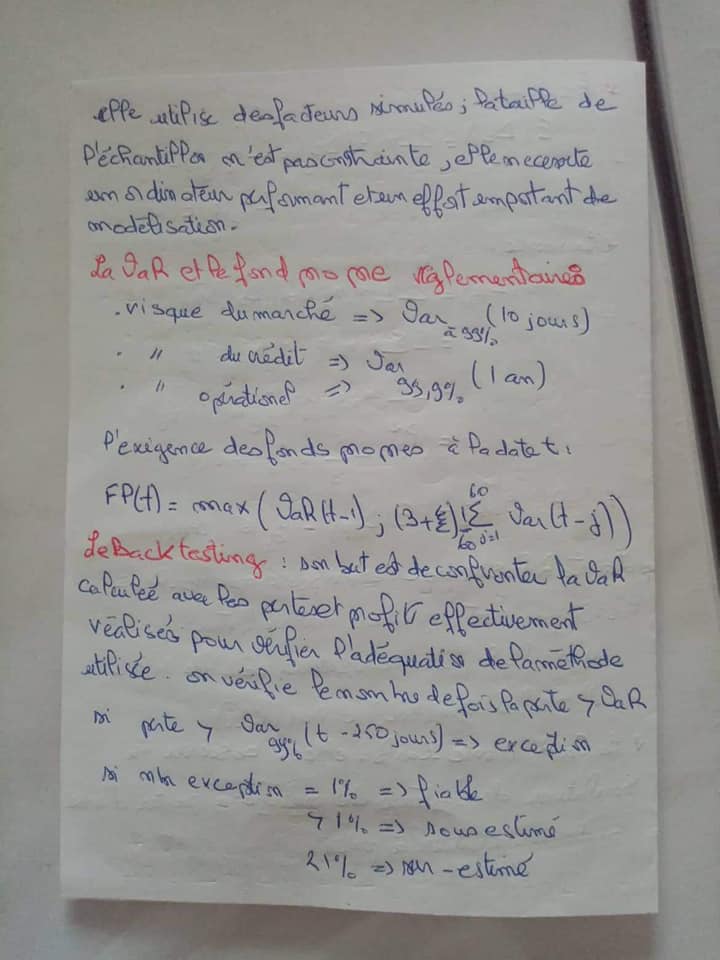 elle utilise des facteurs simulés ; la taille de
l'échantillon n'est pas contrainte, elle necessite
un ordinateur performant et un effort important de
modélisation.
La VaR et le fond propre réglementaires
. risque du marché => Var à 99% (10 jours)
. " du crédit => Var
. " opérationel => 99,9% (1 an)
l'exigence des fonds propres à la date t :
FP(t) = max ( VaR(t-1) ; (3+ξ) 1/60 60 Σ j=1 Var(t-j))
Le Backtesting : son but est de confronter la VaR
calculée avec les pertes et profit effectivement
réalisés pour vérifier l'adéquation de la méthode
utilisée. on vérifie le nombre de fois la perte > VaR
si perte > Var 99% (t - 250 jours) => exception
si nbr exception = 1% => fiable
> 1% => sous estimé
< 1% => sur-estimé